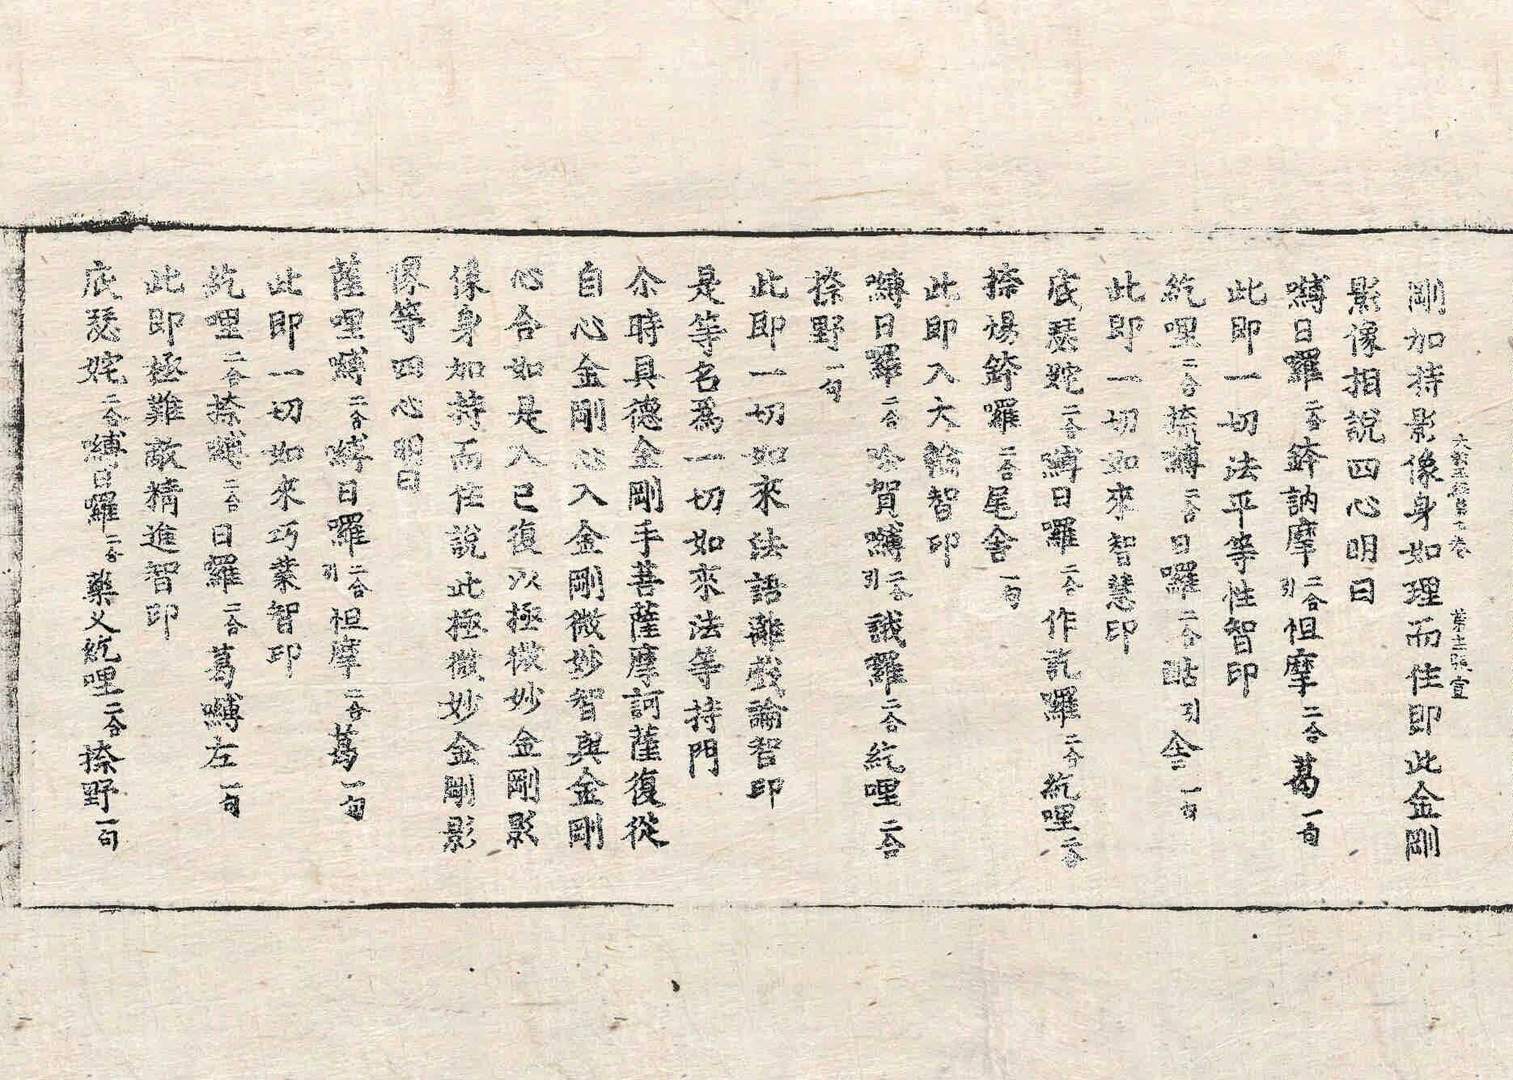 剛加持影像身如理而住即此金剛
影像相說四心明曰
嚩日囉二合鉢訥摩二合引怛摩二合葛一句
此即一切法平等性智印
紇哩二合捺嚩二合日囉二合酤引舍一句
此即一切如來智慧印
底瑟姹二合嚩日囉二合作訖囉二合紇哩二合
捺楊鉢囉二合尾舍一句
此即入大輪智印
嚩日囉二合吟賀嚩二合引誐囉二合紇哩二合
捺野一句
此即一切如來法語離戲論智印
是等名爲一切如來法等持門
尒時具德金剛手菩薩摩訶薩復從
自心金剛心入金剛微妙智與金剛
心合如是入已復以極微妙金剛影
像身加持而住說此極微妙金剛影
像等四心明曰
薩哩嚩二合嚩日囉二合引怛摩二合葛一句
此即一切如來巧業智印
紇哩二合捺嚩二合日囉二合葛嚩左一句
此即極難敵精進智印
底瑟姹二合嚩日囉二合藥叉紇哩二合捺野一句